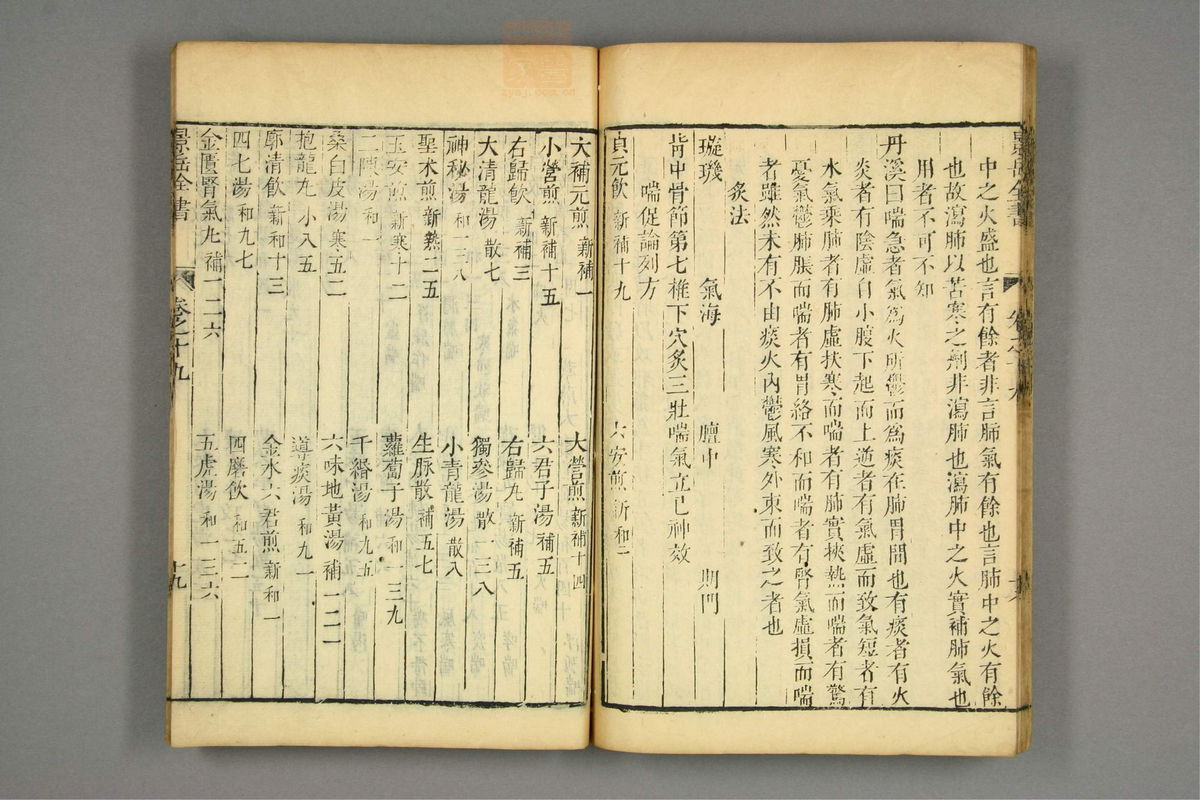 中之火盛也言有餘者非言肺氣有餘也言肺中之火有餘
也故瀉肺以苦寒之劑非瀉肺也瀉肺中之火實補肺氣也
用者不可不知
丹溪曰喘急者氣爲火所鬱而爲痰在肺胃間也有痰者有火
炎者有陰虛自小腹下起而上逆者有氣虛而致氣短者有
水氣乘肺者有肺虛挾寒而喘者有肺實挾熱而喘者有驚
憂氣鬱肺脹而喘者有胃絡不和而喘者有腎氣虛損而喘
者雖然未有不由痰火內鬱風寒外束而致之者也
灸法
璇璣 氣海 膻中 期門
背中骨節第七椎下穴灸三壯喘氣立已神效
喘促論列方
貞元飲 新補十九 六安煎 新和二
大補元煎 新補一 大營煎 新補十四
小營煎 新補十五 六君子湯 補五
右歸飲 新補三 右歸丸 新補五
大清龍湯 散七 獨參湯 散一三八
神秘湯 和一三八 小青龍湯 散八
聖朮煎 新熱二五 生脉散 補五七
玉安煎 新寒十二 蘿蔔子湯 和一三九
二陳湯 和一 千緡湯 和九五
桑白皮湯 寒五二 六味地黃湯 補一二一
抱龍丸 小八五 導痰湯 和九一
廓清飲 新和十三 金水六君煎 新和一
四七湯 和九七 四磨飲 和五二
金匱腎氣丸 補一二六 五虎湯 和一三六
景岳全書 卷之十九 十九